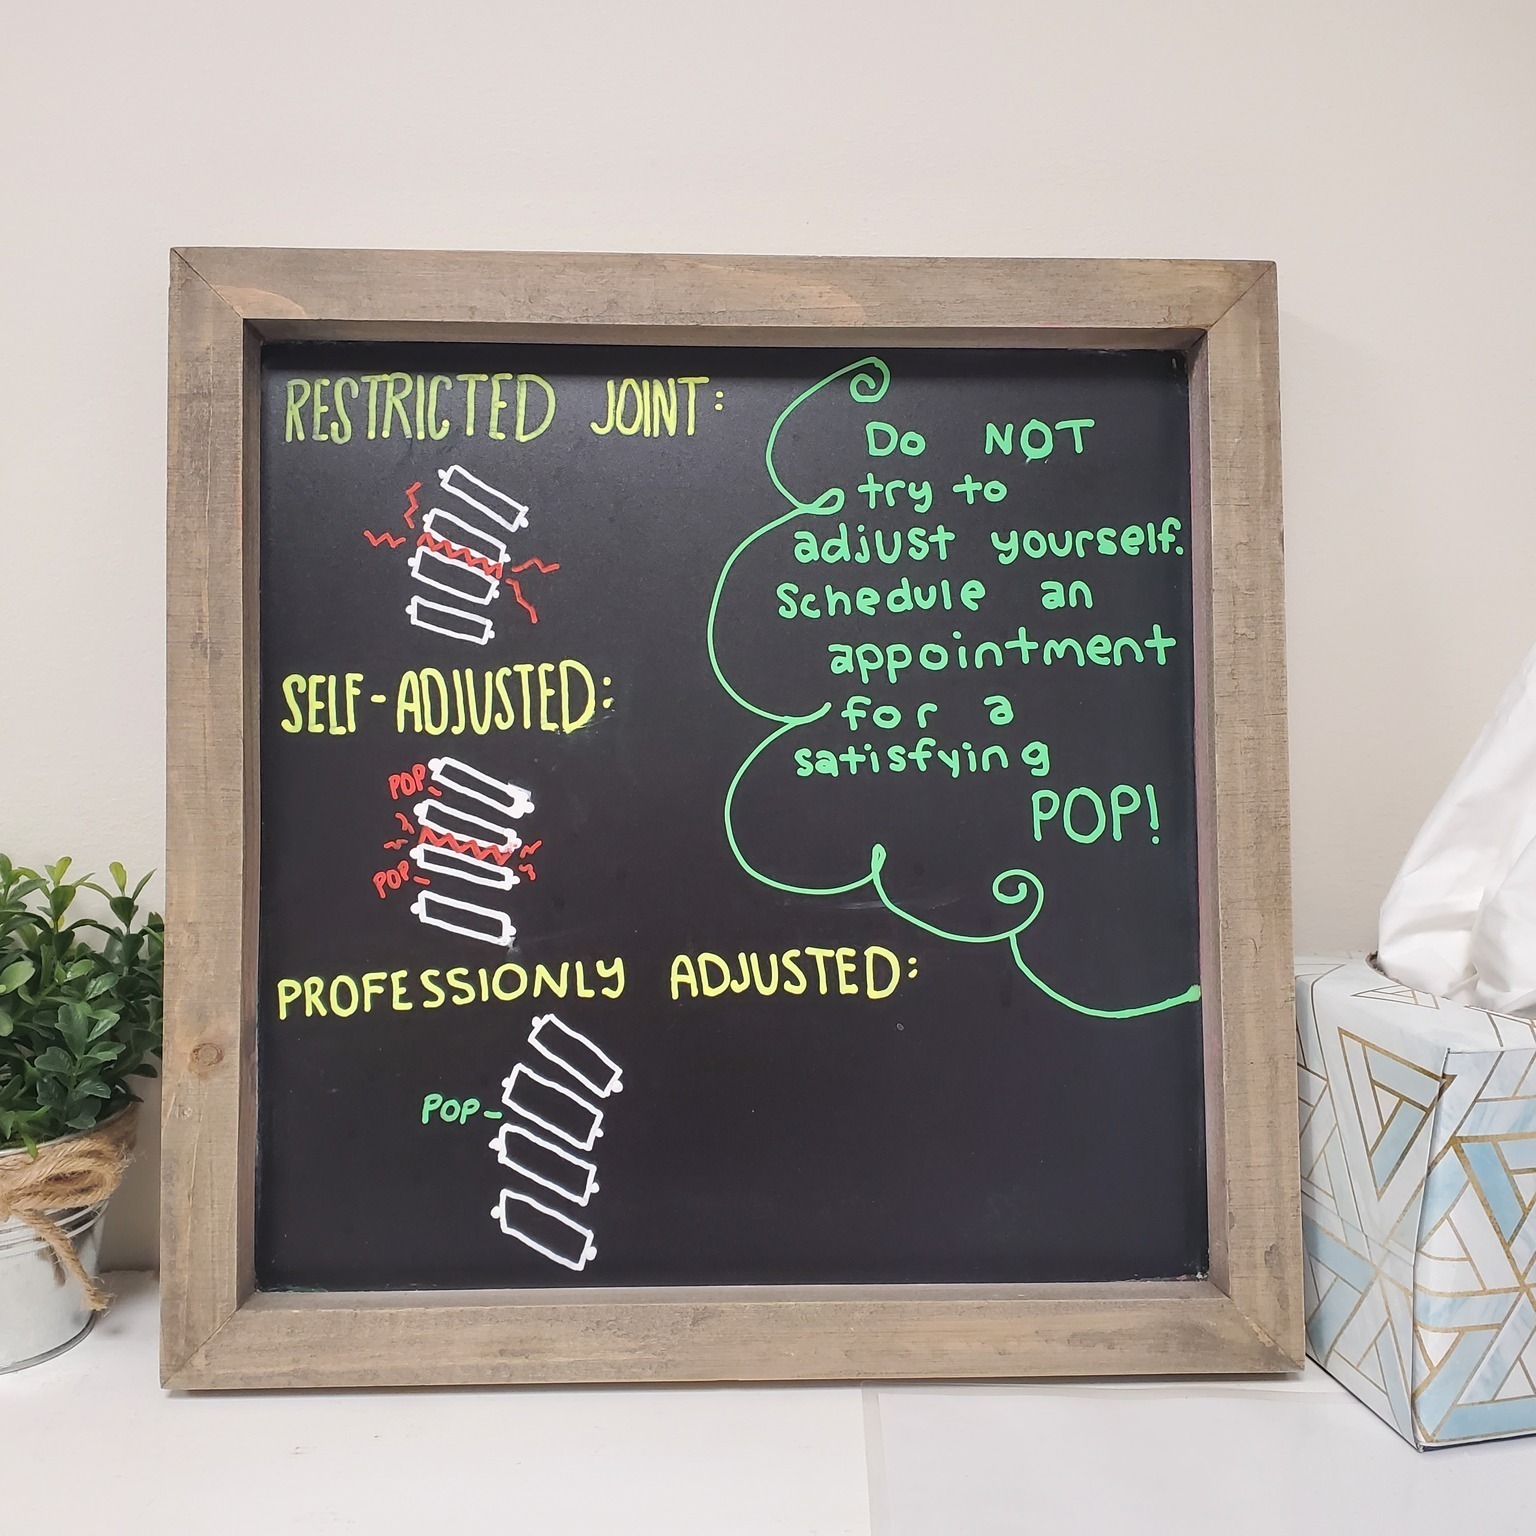 RESTRICTED JOINT:
SELF-ADJUSTED:
POP
POP
PROFESSIONLY ADJUSTED:
POP
Do NOT
try to
adjust yourself.
Schedule an
appointment
for a
satisfying
POP!